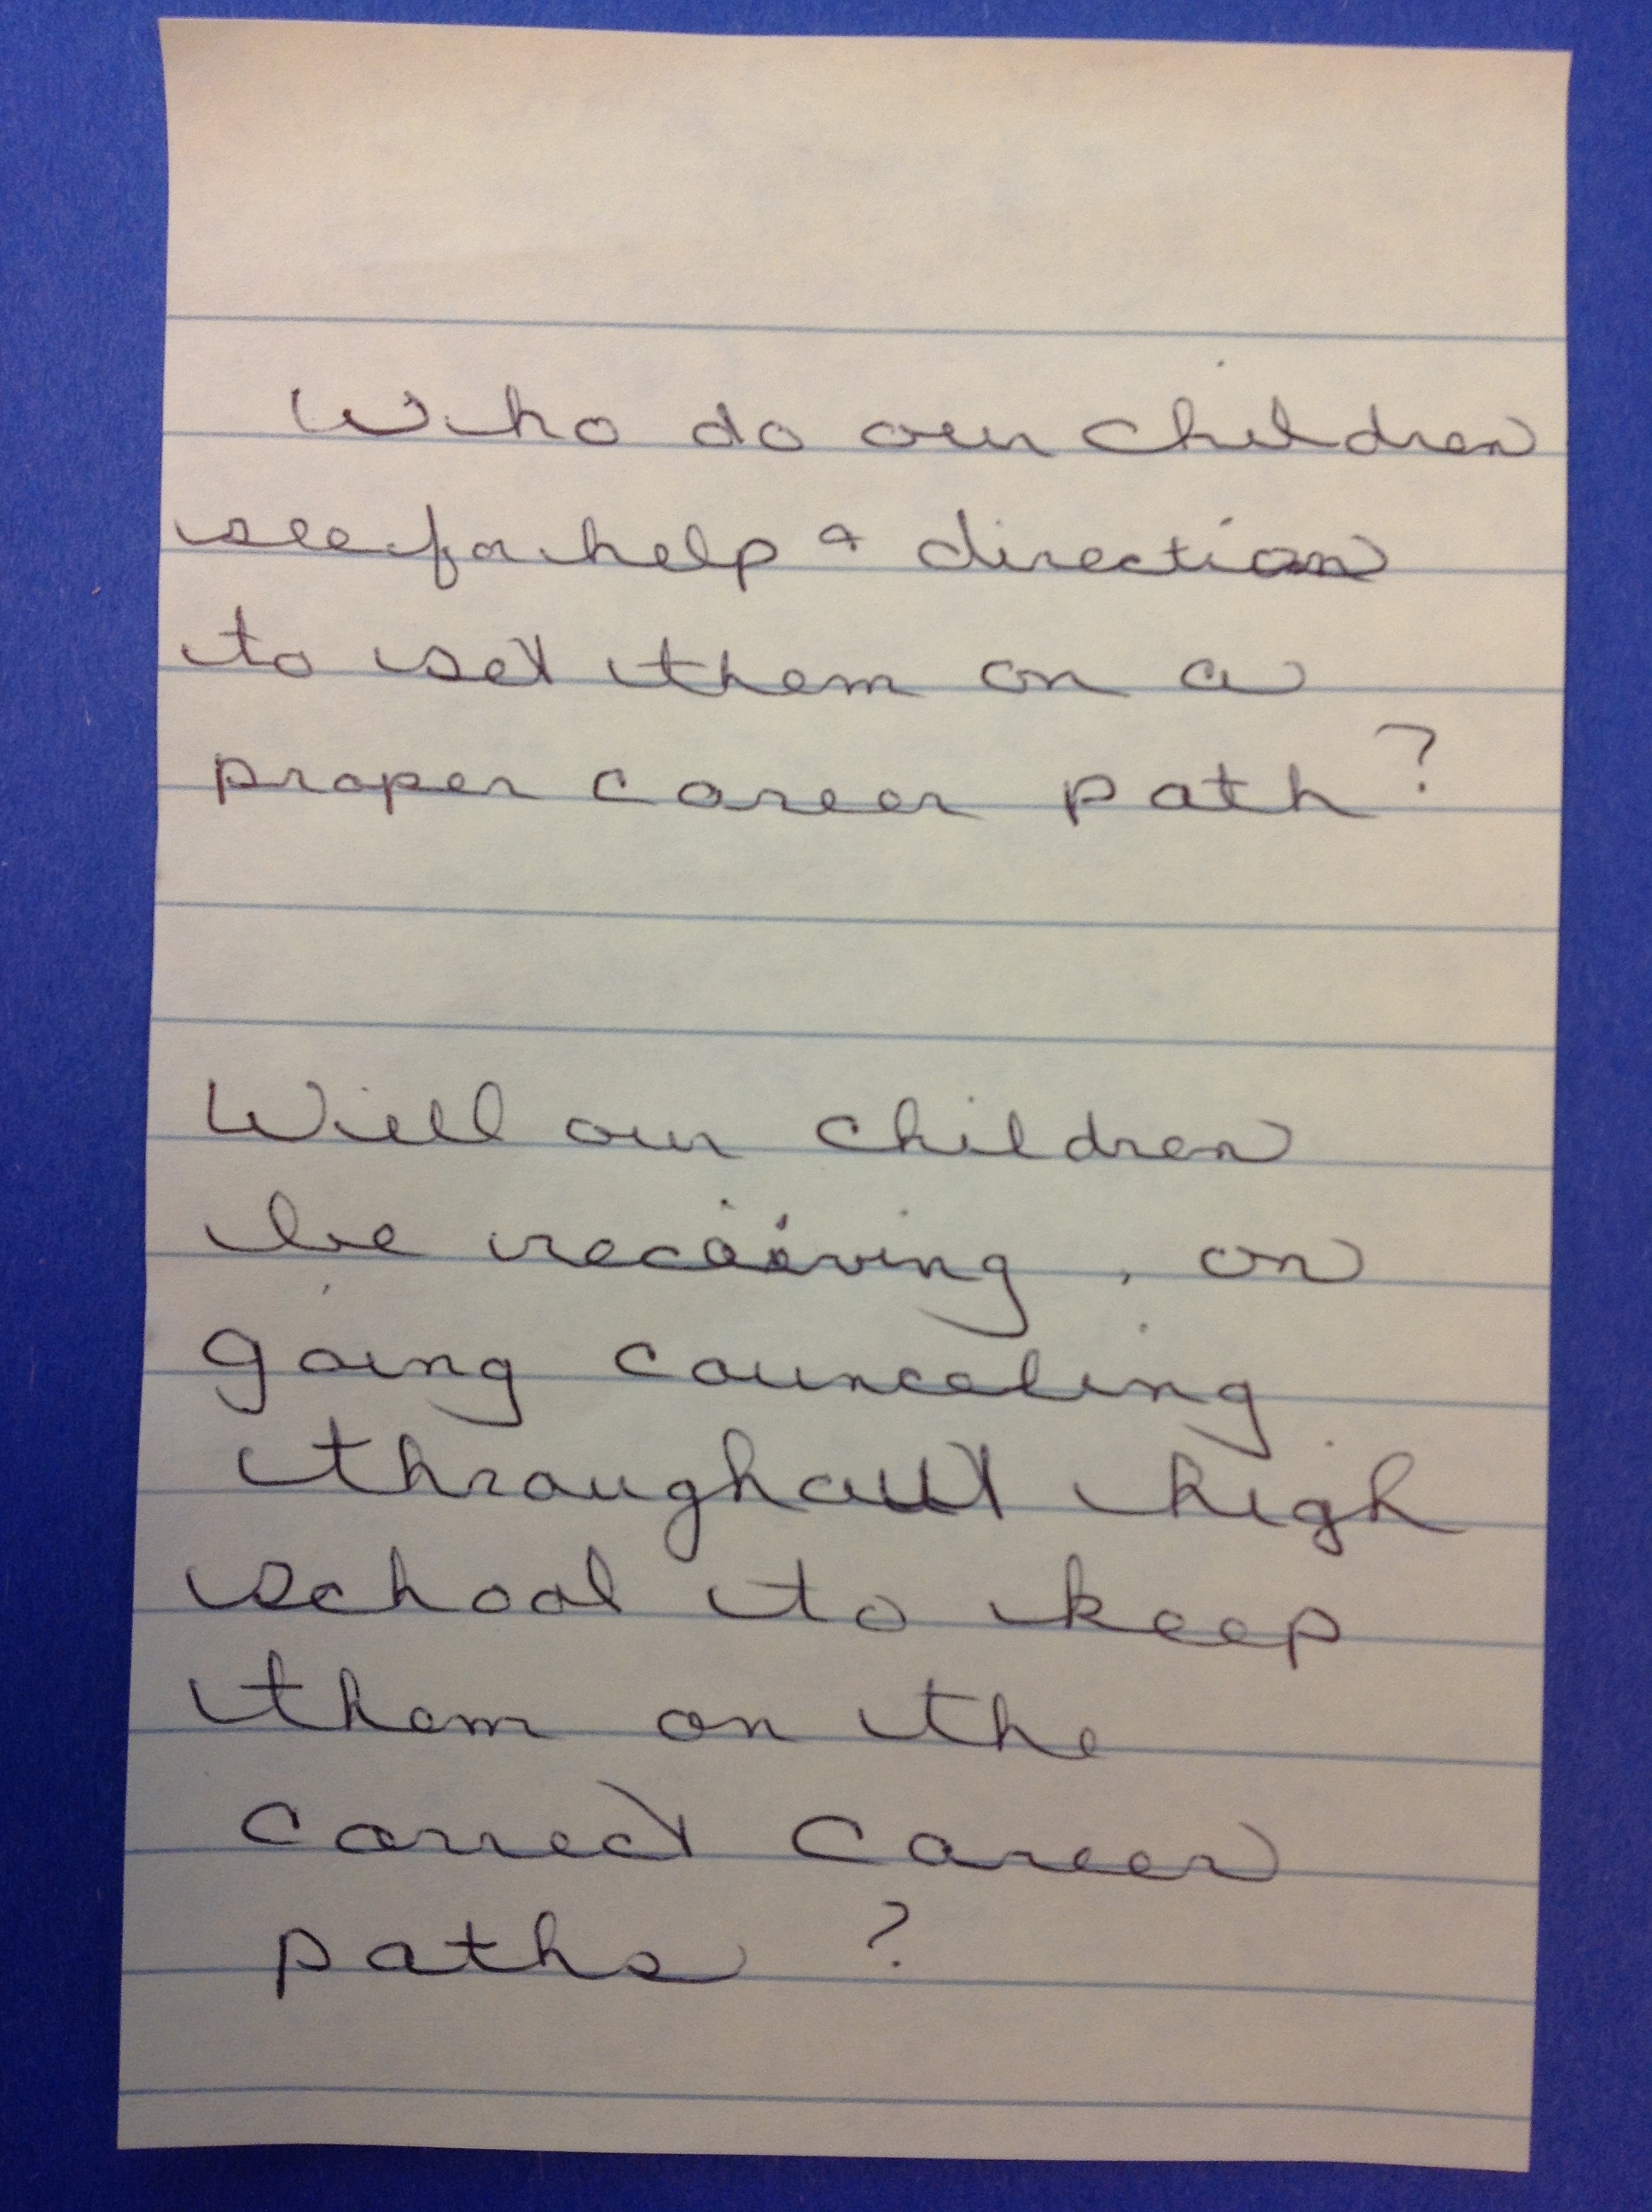 Who do our children
see for help & direction
to set them on a
proper career path?
Will our children
be receiving, on
going counceling
throughout high
school to keep
them on the
correct career
paths ?